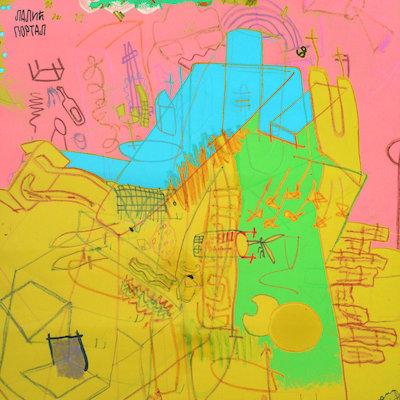 ЛАЛИК
ПОРТАЛ